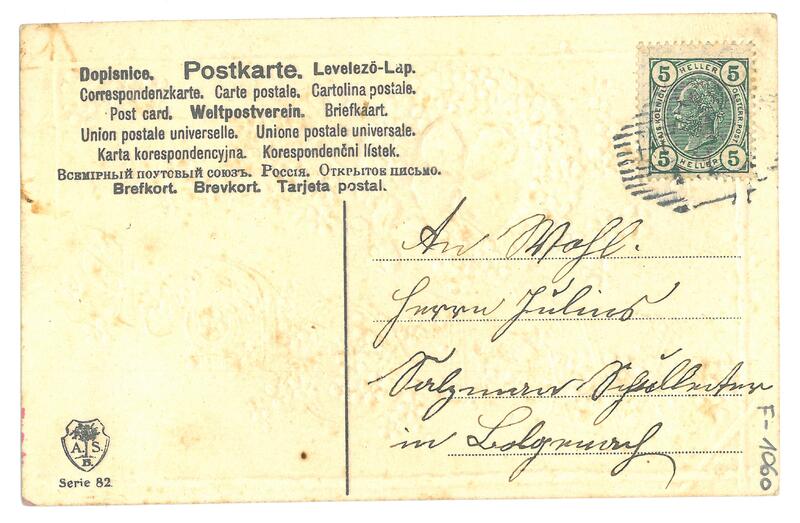 Dopisnice. Postkarte. Levelező-Lap.
Correspondenzkarte. Carte postale. Cartolina postale.
Post card. Weltpostverein. Briefkaart.
Union postale universelle. Unione postale universale.
Karta korespondencyjna. Korespondenční lístek.
Всемірный поутовый союзъ. Россія. Открытое письмо.
Brefkort. Brevkort. Tarjeta postal.
5 HELLER 5
KAIS. KOENIGL. OESTERR. POST
5 HELLER 5
An Wohl.
Herrn Julius
Salzman Schulleiter
in Bolgenach
F-1060
A. S.
B.
Serie 82.